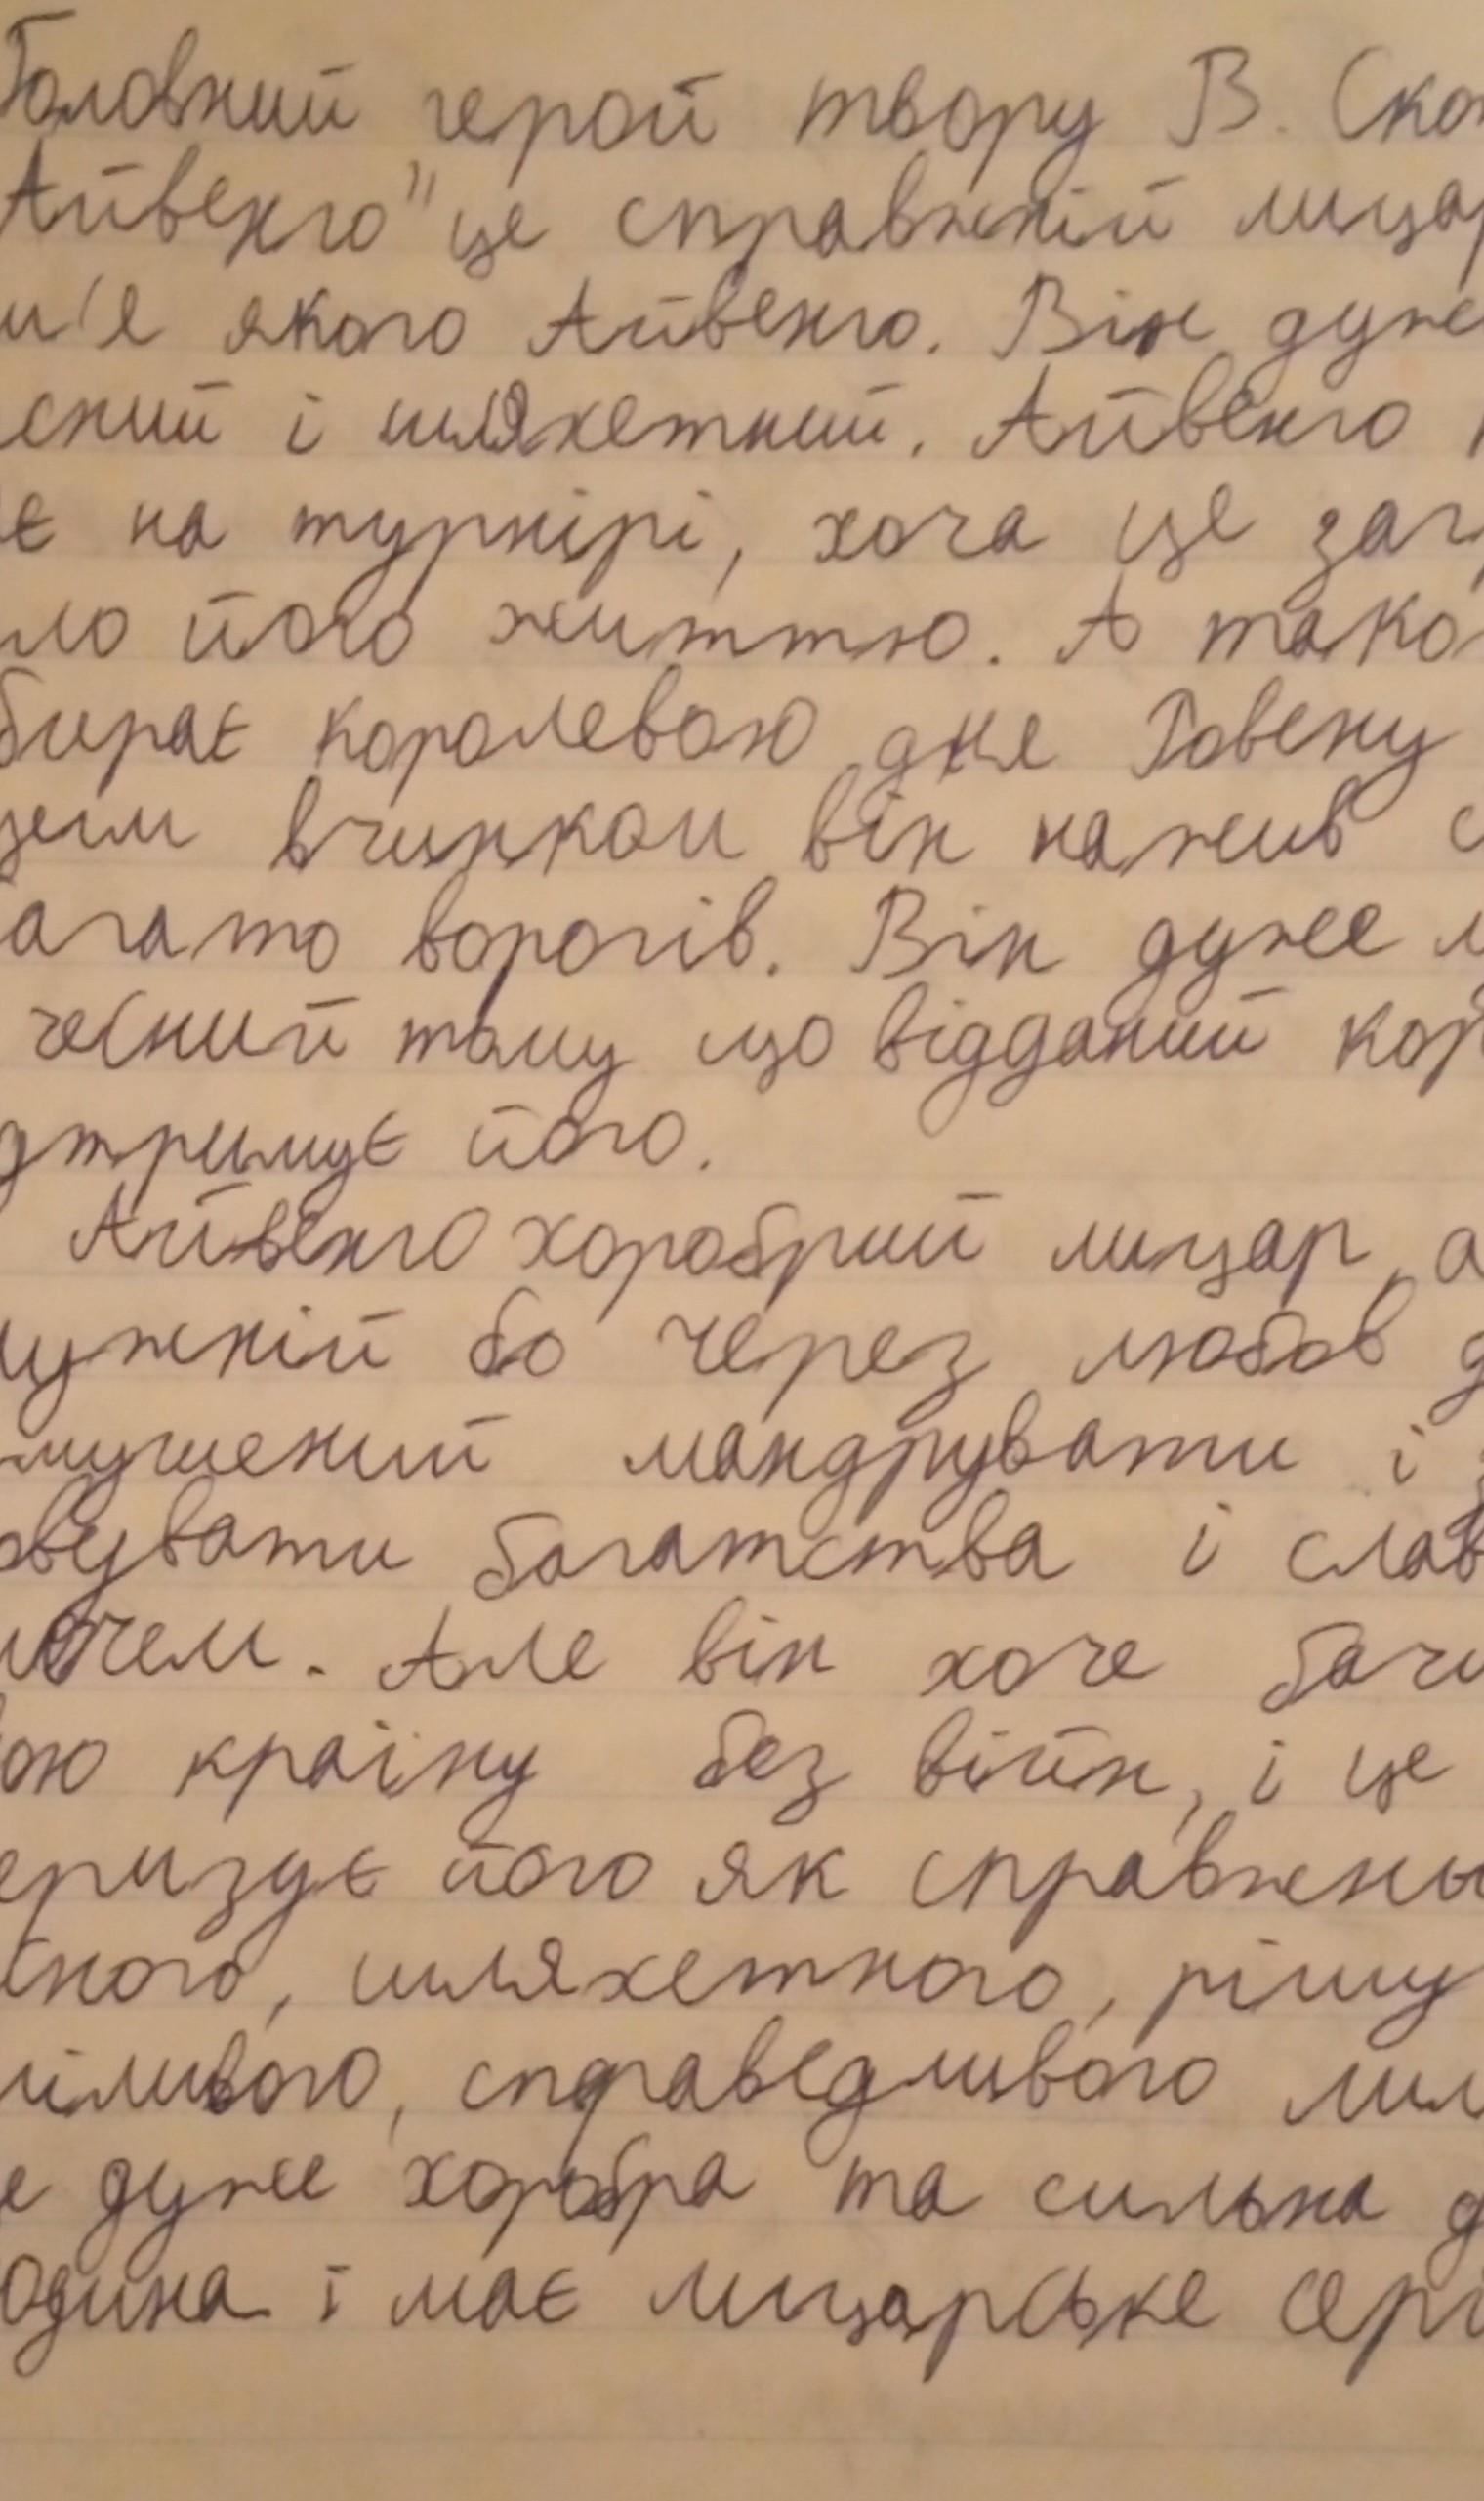 Головний герой твору В. Ско
Айвенго" це справжній лицар
м'я якого Айвенго. Він дуже
есний і шляхетний. Айвенго
є на турнірі, хоча це заг
ло його життю. А тако
бирає королевою дня Ровену
цем вчинком він нажив с
агато ворогів. Він дуже
чесний тому що відданий кор
дтримує його.
Айвенго хоробрий лицар, а
ужній бо через любов д
мушений мандрувати і з
овувати богатства і слав
мечем. Але він хоче бачи
ою країну без війн, і це
еризує його як справжньо
сного, шляхетного, рішу
міливого, справедливого лиц
е дуже хоробра та сильна д
юдина і має лицарське серц